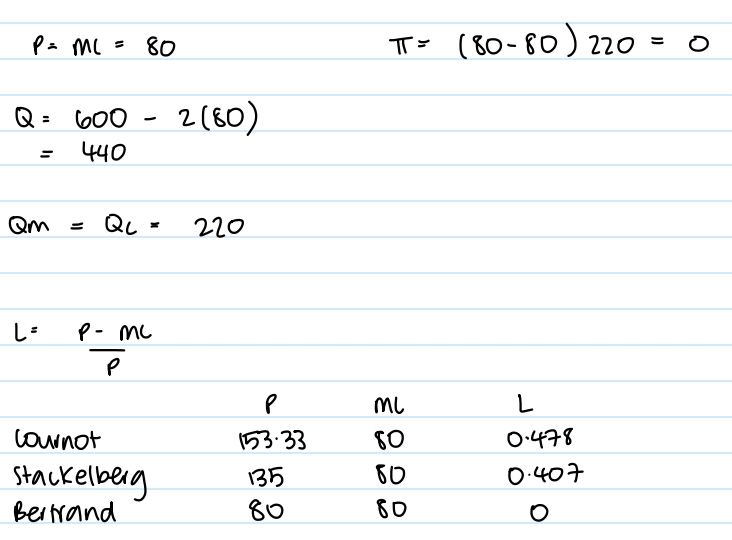 P = MC = 80    π = (80-80) 220 = 0
Q = 600 - 2(80)
= 440
Qm = QC = 220
L = P - MC
P
P MC L
Cournot 153.33 80 0.478
Stackelberg 135 80 0.407
Bertrand 80 80 0